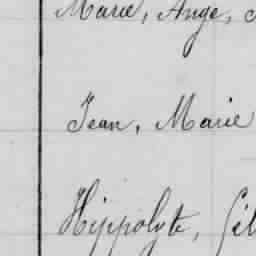 Marie, Ange,
Jean, Marie
Hippolyte,